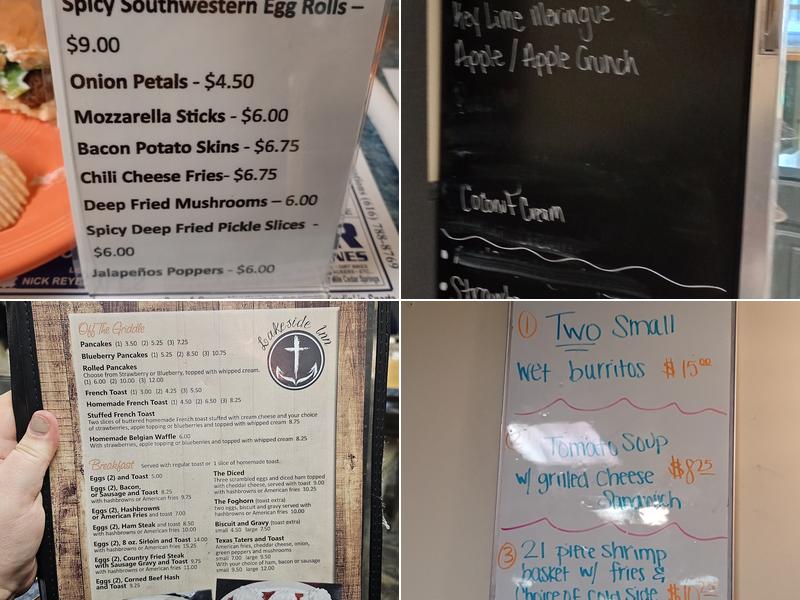 Spicy Southwestern Egg Rolls –
$9.00
Onion Petals - $4.50
Mozzarella Sticks - $6.00
Bacon Potato Skins - $6.75
Chili Cheese Fries- $6.75
Deep Fried Mushrooms – 6.00
Spicy Deep Fried Pickle Slices -
$6.00
Jalapeños Poppers - $6.00
(616) 788-8769
NICK REYE
Key Lime Meringue
Apple / Apple Crunch
Coconut Cream
Off The Griddle
Lakeside Inn
Pancakes (1) 3.50 (2) 5.25 (3) 7.25
Blueberry Pancakes (1) 5.25 (2) 8.50 (3) 10.75
Rolled Pancakes
Choose from Strawberry or Blueberry, topped with whipped cream.
(1) 6.00 (2) 10.00 (3) 12.00
French Toast (1) 3.00 (2) 4.25 (3) 5.50
Homemade French Toast (1) 4.50 (2) 6.50 (3) 8.25
Stuffed French Toast
Two slices of buttered homemade French toast stuffed with cream cheese and your choice
of strawberries, apple topping or blueberries and topped with whipped cream 8.75
Homemade Belgian Waffle 6.00
With strawberries, apple topping or blueberries and topped with whipped cream 8.25
Breakfast Served with regular toast or 1 slice of homemade toast.
Eggs (2) and Toast 5.00
Eggs (2), Bacon,
or Sausage and Toast 8.25
with hashbrowns or American fries 9.75
Eggs (2), Hashbrowns
or American Fries and toast 7.00
Eggs (2), Ham Steak and toast 8.50
with hashbrowns or American fries 10.00
Eggs (2), 8 oz. Sirloin and Toast 14.00
with hashbrowns or American fries 15.25
Eggs (2), Country Fried Steak
with Sausage Gravy and Toast 9.75
with hashbrowns or American fries 11.00
Eggs (2), Corned Beef Hash
and Toast 9.25
The Diced
Three scrambled eggs and diced ham topped
with cheddar cheese, served with toast 9.00
with hashbrowns or American fries 10.25
The Foghorn (toast extra)
two eggs, biscuit and gravy served with
hashbrowns or American fries 10.00
Biscuit and Gravy (toast extra)
small 4.50 large 7.50
Texas Taters and Toast
American fries, cheddar cheese, onion,
green peppers and mushrooms
small 7.00 large 9.50
With your choice of ham, bacon or sausage
small 9.50 large 12.00
1 Two Small
wet burritos $15.00
Tomato Soup
w/ grilled Cheese $8.25
Sandwich
3 21 piece shrimp
basket w/ fries &
Choice of cold side